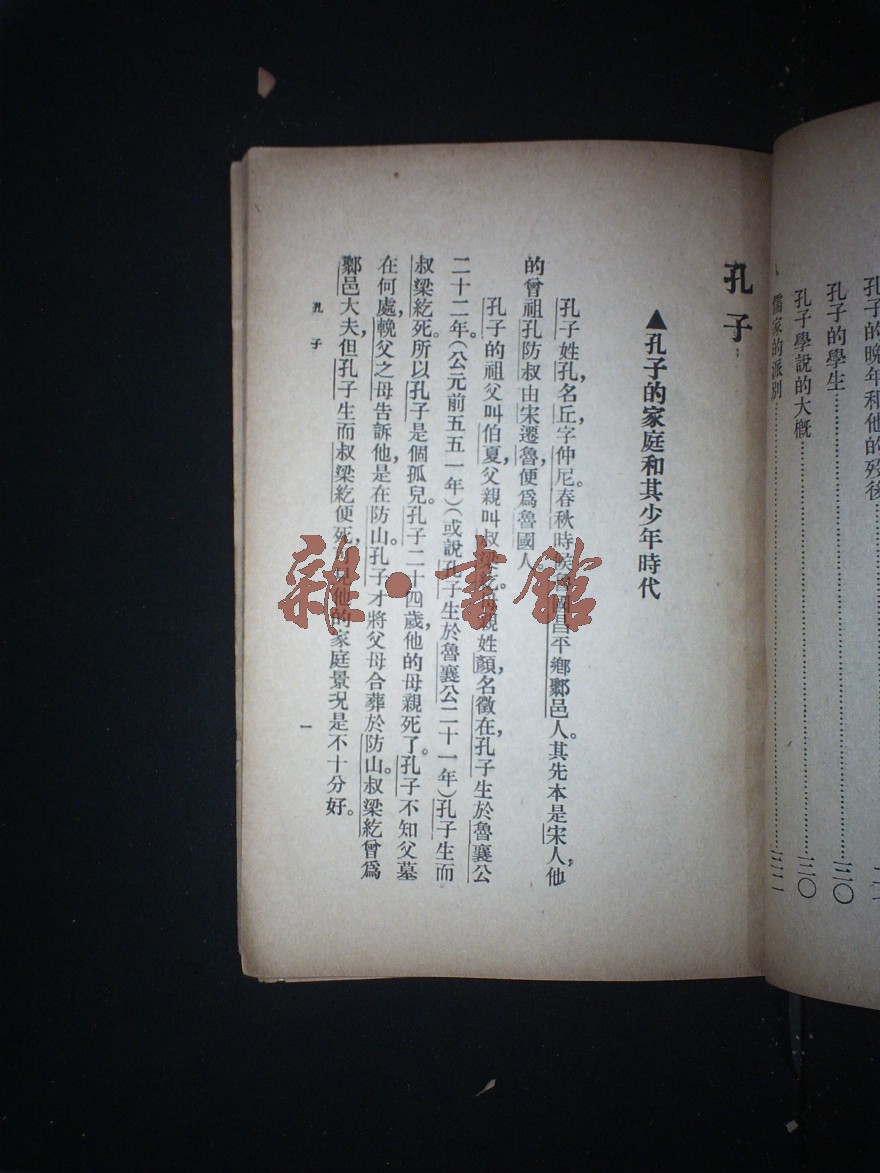 孔子的晚年和他的歿後
孔子的學生
孔子學說的大概
儒家的派別
孔子
▲孔子的家庭和其少年時代
孔子姓孔，名丘，字仲尼。春秋時候魯國昌平鄉鄹邑人。其先本是宋人，他
的曾祖孔防叔由宋遷魯，便爲魯國人。
孔子的祖父叫伯夏，父親叫叔梁紇。母親姓顏，名徵在，孔子生於魯襄公
二十二年。（公元前五五一年）（或說孔子生於魯襄公二十一年）孔子生而
叔梁紇死。所以孔子是個孤兒。孔子二十四歲，他的母親死了。孔子不知父墓
在何處，輓父之母告訴他，是在防山。孔子才將父母合葬於防山。叔梁紇曾爲
鄹邑大夫，但孔子生而叔梁紇便死，可見他的家庭景況是不十分好。
孔子
一
雜·書館